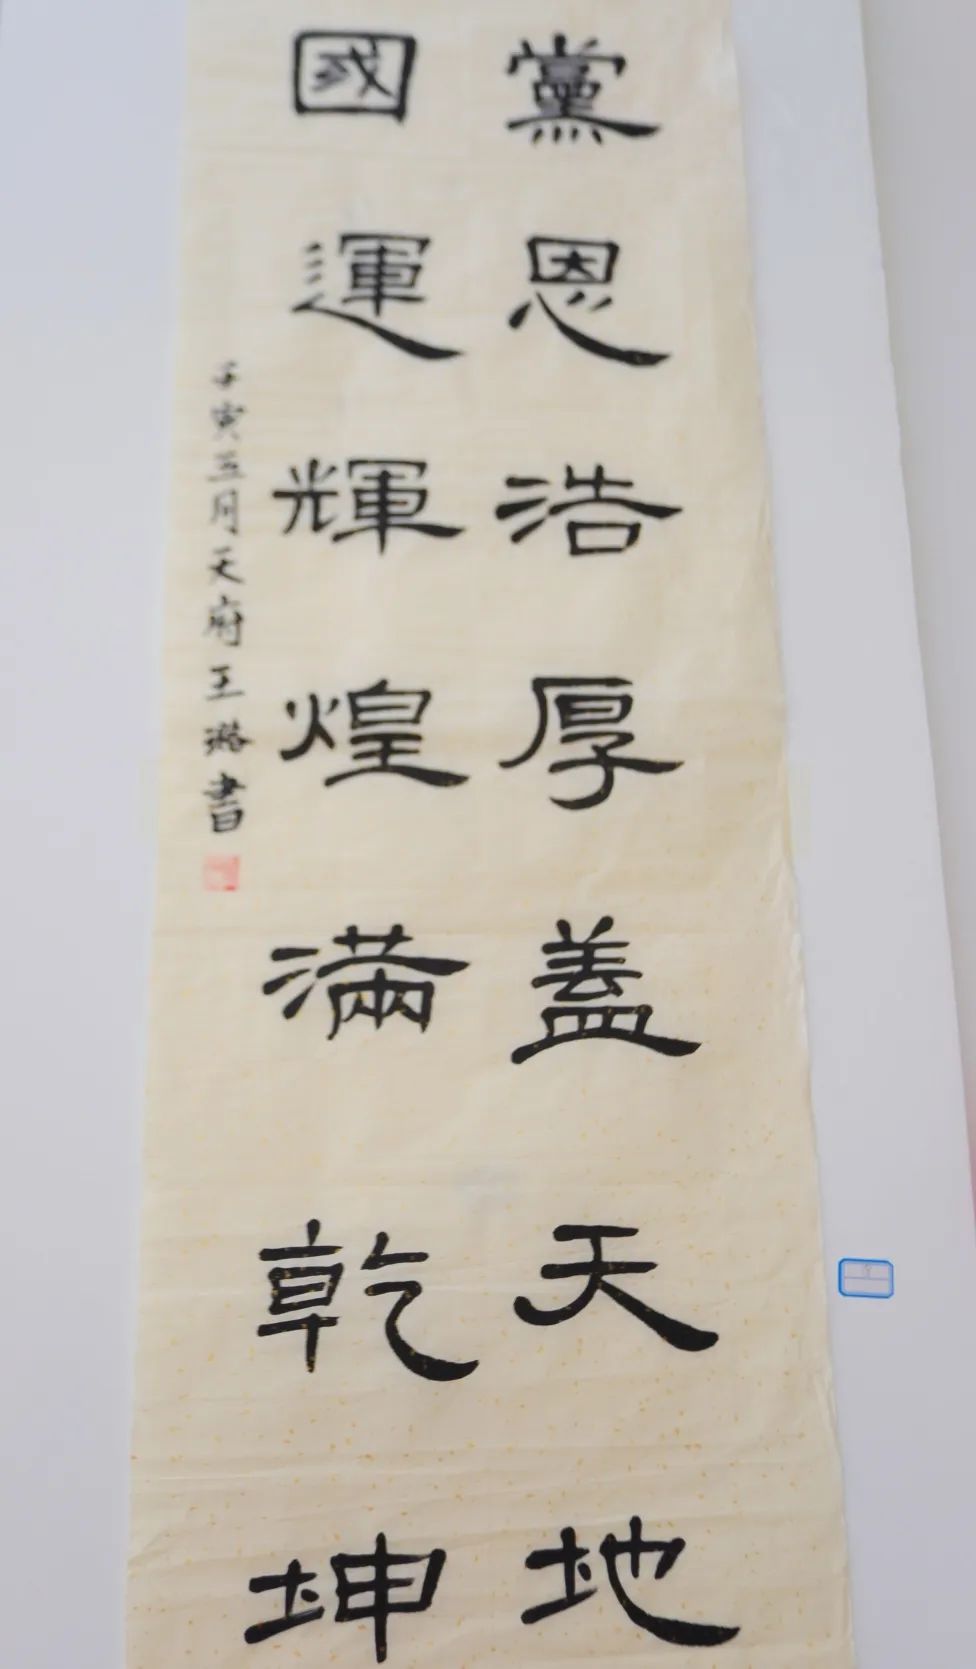 黨恩浩厚蓋天地
國運輝煌滿乾坤
壬寅五月天府王潞書